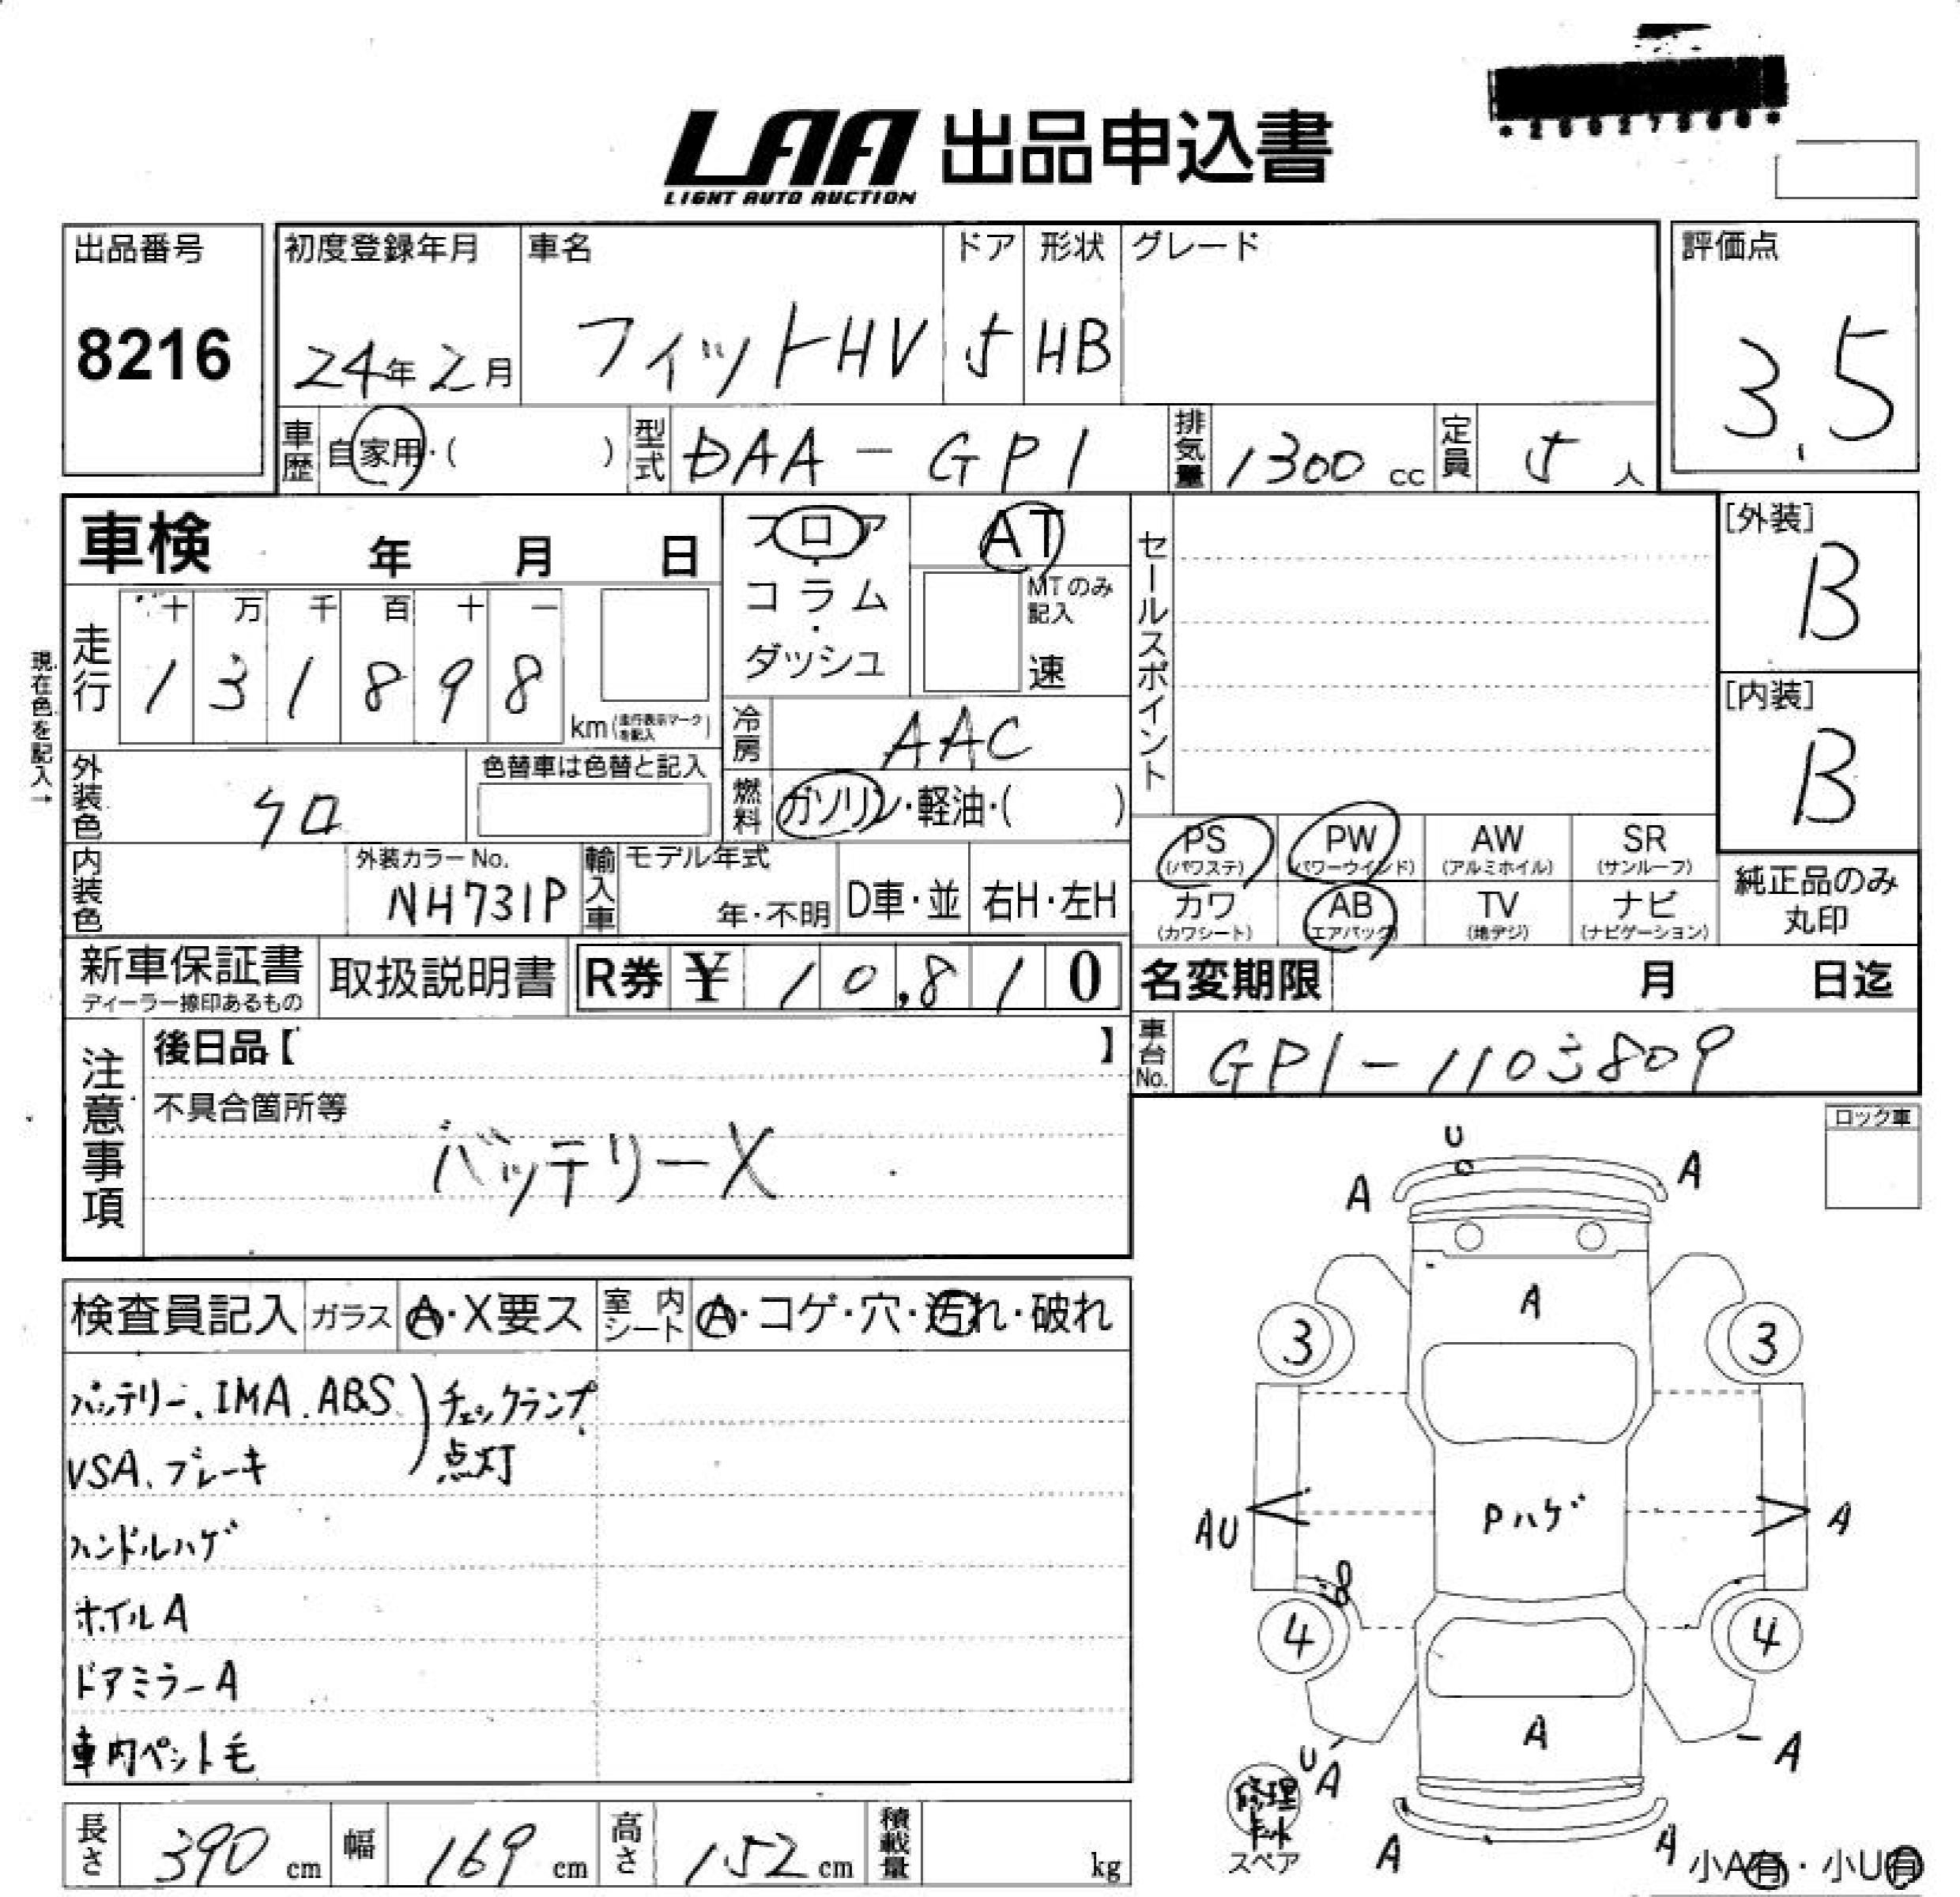 LAA 出品申込書
LIGHT AUTO AUCTION
出品番号
8216
初度登録年月
24年2月
車名
フィットHV
ドア
5
形状
HB
グレード
評価点
3.5
車歴
自家用・( )
型式
DAA-GP1
排気量
1300 cc
定員
5人
車検 年 月 日
フロア・コラム・ダッシュ
AT
MTのみ記入
速
セールスポイント
[外装]
B
[内装]
B
現在色を記入→
走行
十 万 千 百 十 一
1 3 1 8 9 8
km(走行表示マークを記入)
冷房
AAC
外装色
クロ
色替車は色替と記入
燃料
ガソリン・軽油・( )
内装色
外装カラーNo.
NH731P
輸入車
モデル年式
年・不明
D車・並
右H・左H
PS (パワステ)
PW (パワーウインド)
AW (アルミホイル)
SR (サンルーフ)
カワ (カワシート)
AB (エアバック)
TV (地デジ)
ナビ (ナビゲーション)
純正品のみ
丸印
新車保証書
ディーラー捺印あるもの
取扱説明書
R券 ¥ 10,810
名変期限 月 日迄
車台No.
GP1-1103809
注意事項
後日品【 】
不具合箇所等
バッテリーX
ロック車
検査員記入
ガラス
A・X要ス
室内シート
A・コゲ・穴・汚れ・破れ
バッテリー、IMA、ABS
VSA、ブレーキ
チェックランプ
点灯
ハンドルハゲ
ホイルA
ドアミラーA
車内ペット毛
U
A
A
A
3
3
Pハゲ
AU
A
4
4
A
U
A
A
修理キット
スペア
A
A
小A有・小U有
長さ 390 cm
幅 169 cm
高さ 152 cm
積載量 kg